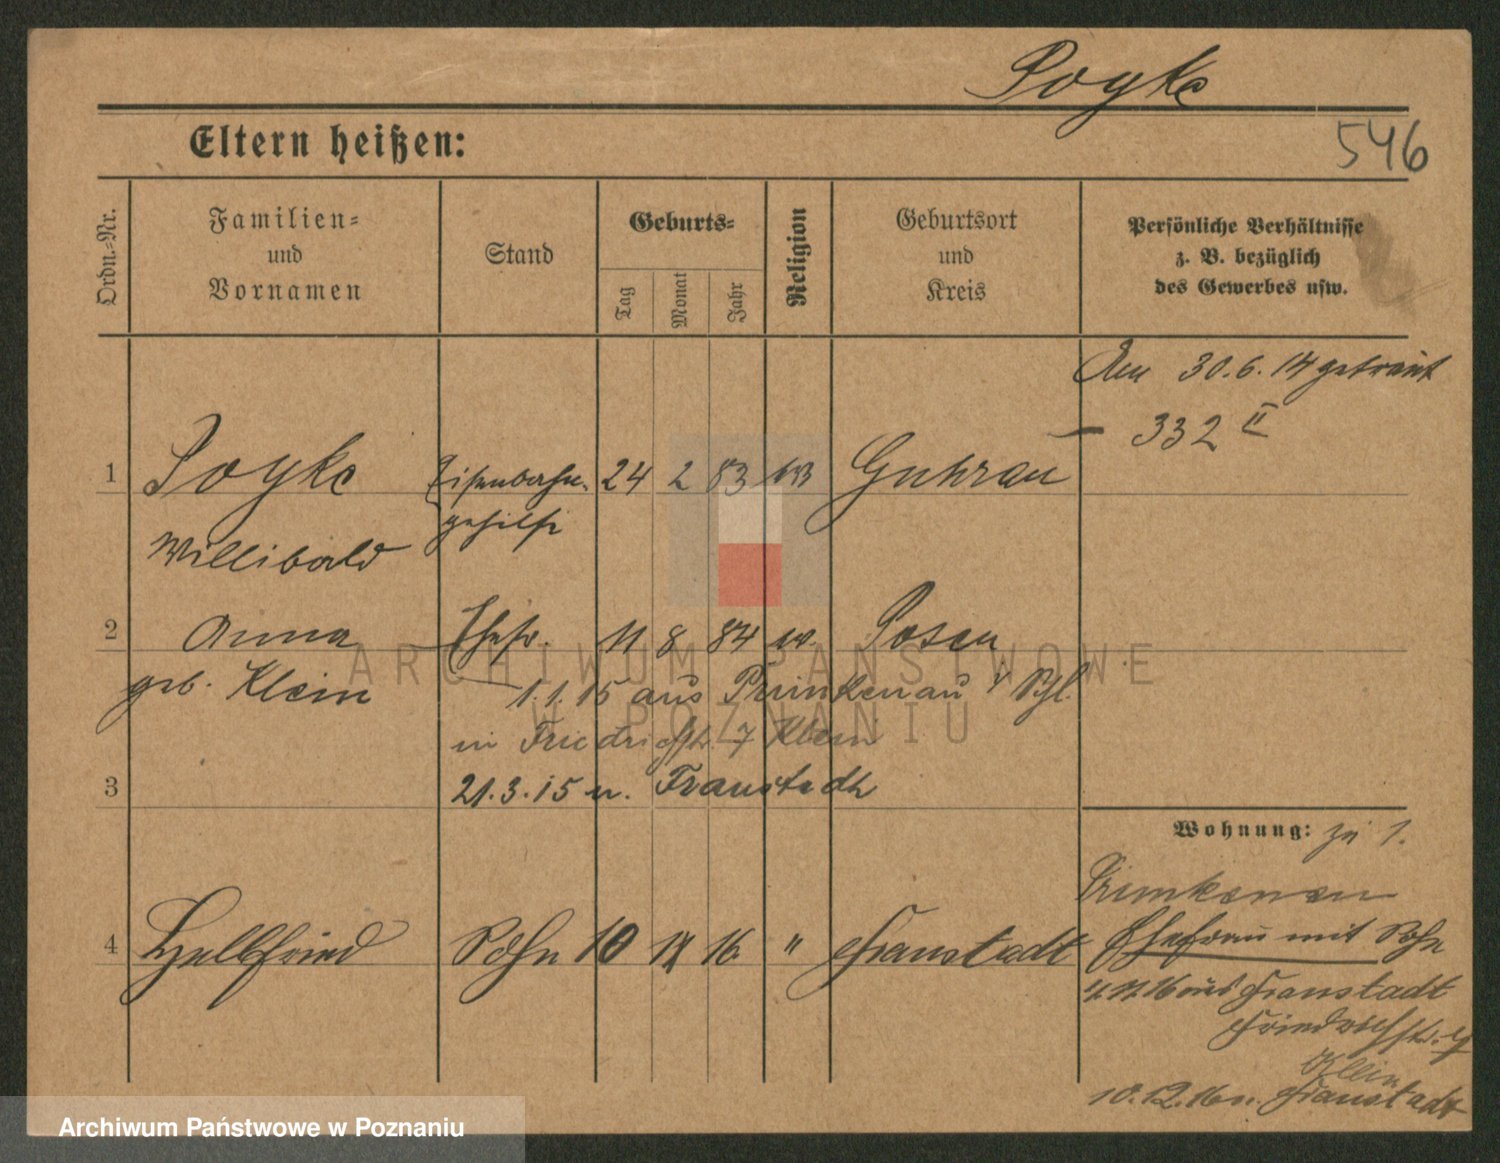 Poyke
546
Eltern heißen:
Ordn.-Nr.
Familien-
und
Vornamen
Stand
Geburts-
Tag
Monat
Jahr
Religion
Geburtsort
und
Kreis
Persönliche Verhältnisse
z. B. bezüglich
des Gewerbes usw.
Am 30.6.14 getraut
- 332 II
1 Poyke Eisenbahn- 24 2 83 Guhrau
gehilfe
Willibald
2 Anna Ehefr. 11 8 84 Posen
geb. Klein 1.1.15 aus Primkenau i/ Schl
in Friedrichstr. 7 Klein
3 21.3.15 n. Fraustadt
Wohnung: zu 1.
Primkenau
4 Hellfried Sohn 10 16 " Fraustadt
Ehefrau mit Sohn
16 aus Fraustadt
Friedrichstr. 7
Klein
10.12.16 n. Fraustadt
ARCHIWUM PAŃSTWOWE
W POZNANIU
Archiwum Państwowe w Poznaniu